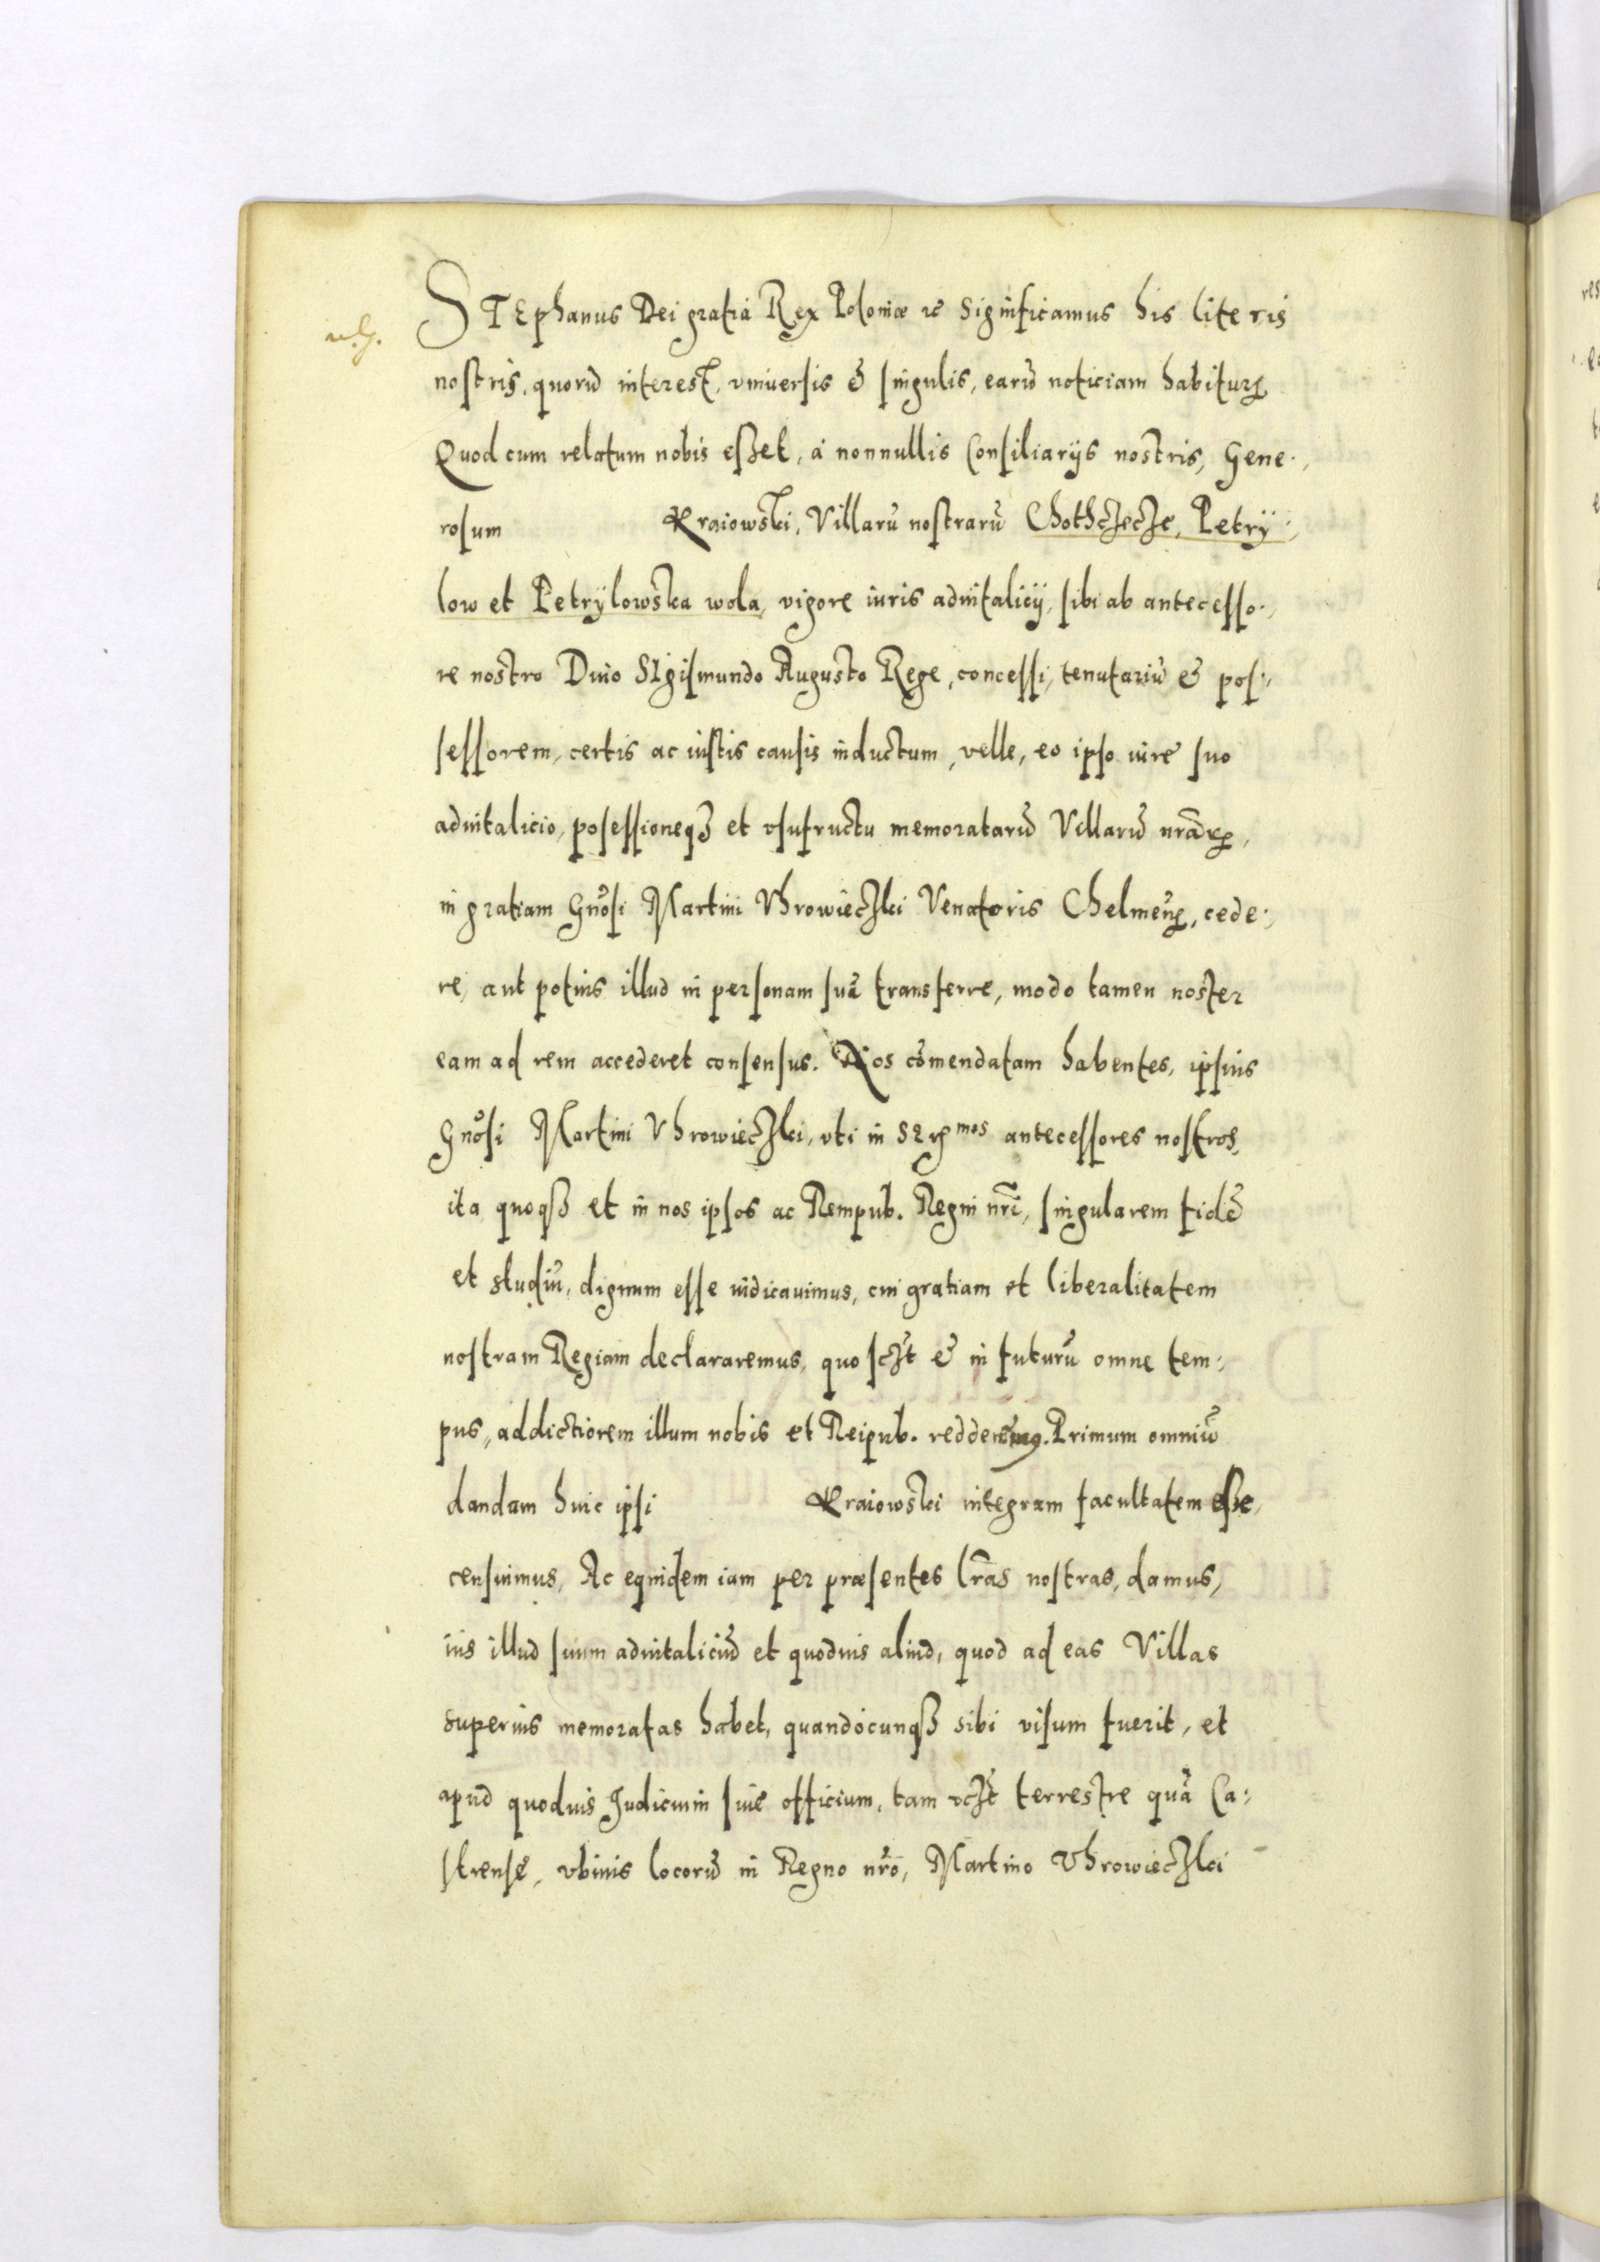 STEphanus Dei gratia Rex Poloniæ ꝛc̃ Significamus his literis
nostris, quorũ interest, vniuersis & singulis, earũ noticiam habiturꝝ
Quod cum relatum nobis eßet, à nonnullis Consiliarÿs nostris, Gene-
rosum Kraiowski, Villarũ nostrarũ Chothczecze, Petrÿ-
low et Petrÿlowska wola, vigore iuris aduitalicÿ, sibi ab antecesso-
re nostro Diuo SIgismundo Augusto Rege, concessi, tenutariũ & pos-
sessorem, certis ac iustis causis inductum, velle, eo ipso iure suo
aduitalicio, posessioneqꝫ et vsufructu memoratarũ Villarũ nrãrꝝ,
in gratiam Gnõsi Martini Vhrowieczki Venatoris Chelmeñ, cede-
re, aut potius illud in personam suã transferre, modo tamen noster
eam ad rem accederet consensus. Nos cõmendatam habentes, ipsius
Gnõsi Martini Vhrowieczki, vti in Serᵐᵒˢ antecessores nostros,
ita quoqꝫ et in nos ipsos ac Rempub. Regni nr̃i, singularem fidẽ
et studiũ, dignum esse iudicauimus, cui gratiam et liberalitatem
nostram Regiam declararemus, quo sczt̃ & in futurũ omne tem-
pus, addictiorem illum nobis et Reipub. redderemꝯ. Primum omniũ
dandam huic ipsi Kraiowski integram facultatem eße,
censuimus, Ac equidem iam per præsentes lr̃as nostras, damus,
ius illud suum aduitaliciũ et quoduis aliud, quod ad eas Villas
superius memoratas habet, quandocunqꝫ sibi visum fuerit, et
apud quoduis Judicium siue officium, tam vczt̃ terrestre quã Ca-
strense, vbiuis locorũ in Regno nr̃o, Martino Vhrowieczki